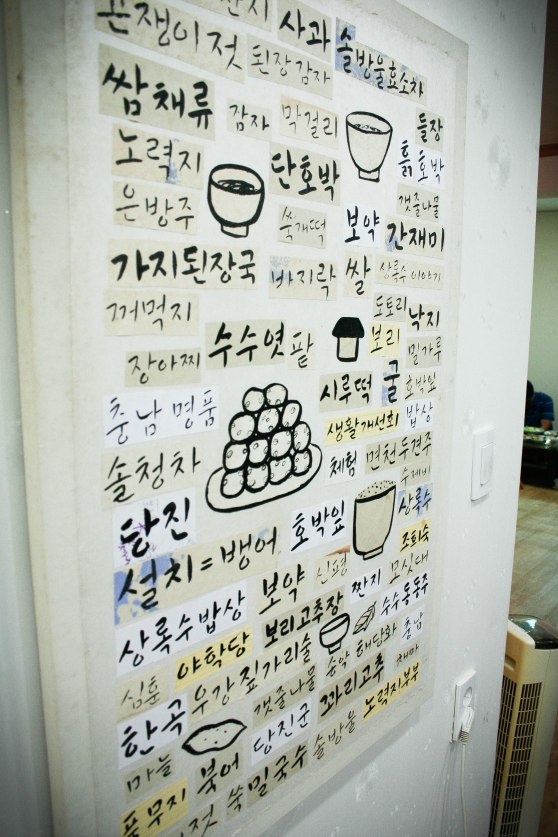 짠지
곤쟁이젓 사과 솔방울효소차
된장감자
쌈채류 감자 막걸리 들장
노력지 단호박 흙호박
은방주 쑥개떡 보약 갯줄나물
간재미
가지된장국 바지락 쌀 상록수 이야기
꺼먹지 도토리 낙지
수수엿 팥 보리 밀가루
장아찌 시루떡 굴 호박잎
충남명품 생활개선회 밥상
솔청차 체험 면천두견주
수제비
당진 호박잎 상록수
설치=뱅어 조희숙
상록수밥상 보약 신평 짠지 모싯대
심훈 야학당 보리고추장 수수동동주
한곡 우강짚가리술 송악 해당화 충남
갯줄나물 꽈리고추 채마
마늘 북어 당진군 노력지부부
쑥밀국수 솔방울
젓